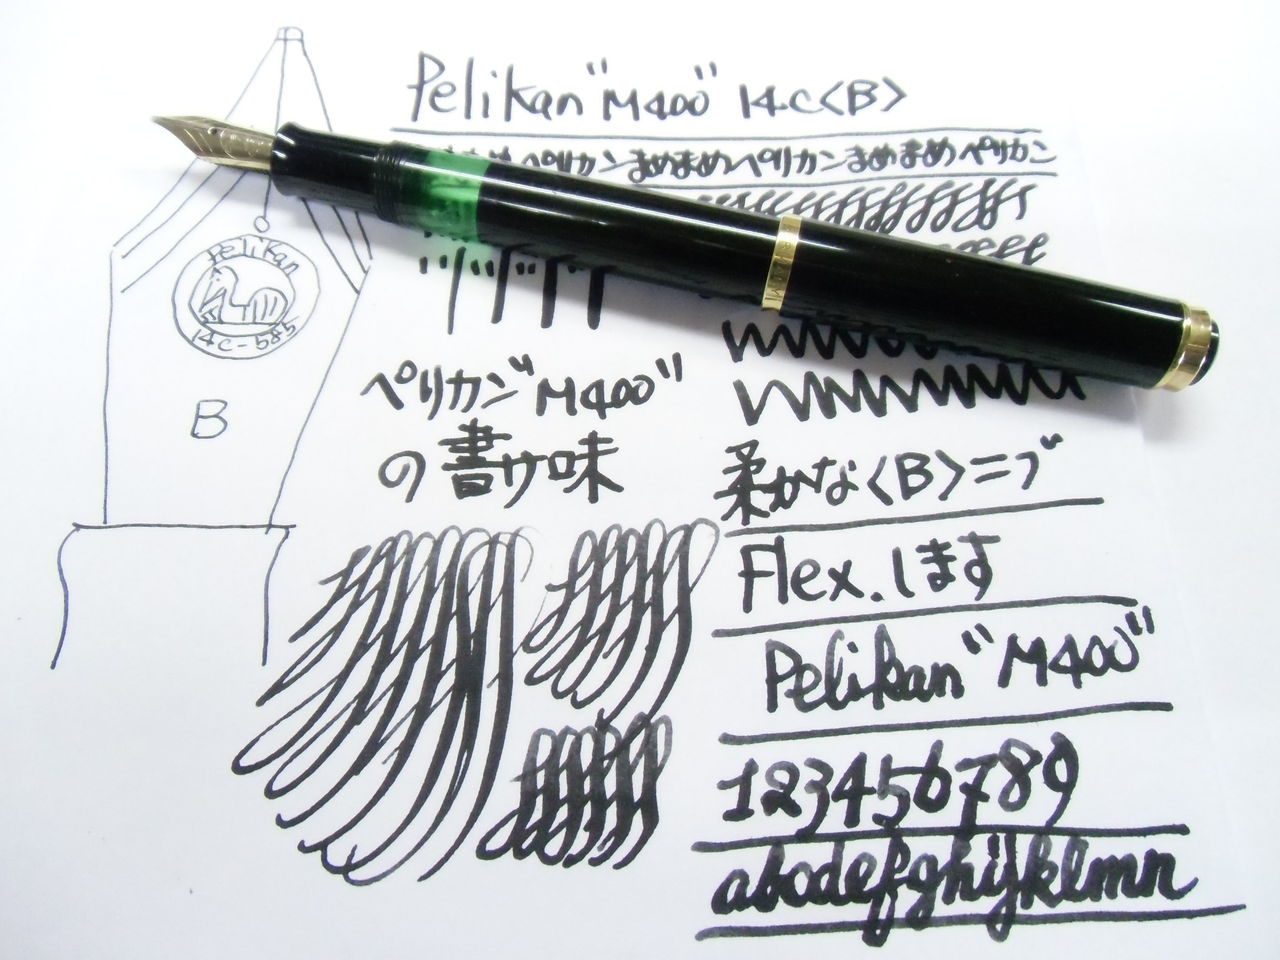 Pelikan "M400" 14C<B>
ペリカンまめまめペリカンまめまめペリカン
Pelikan
14C-585
B
ペリカン"M400"
の書サ味
柔かな<B>ニブ
Flex.します
Pelikan "M400"
123456789
abcdefghijklmn